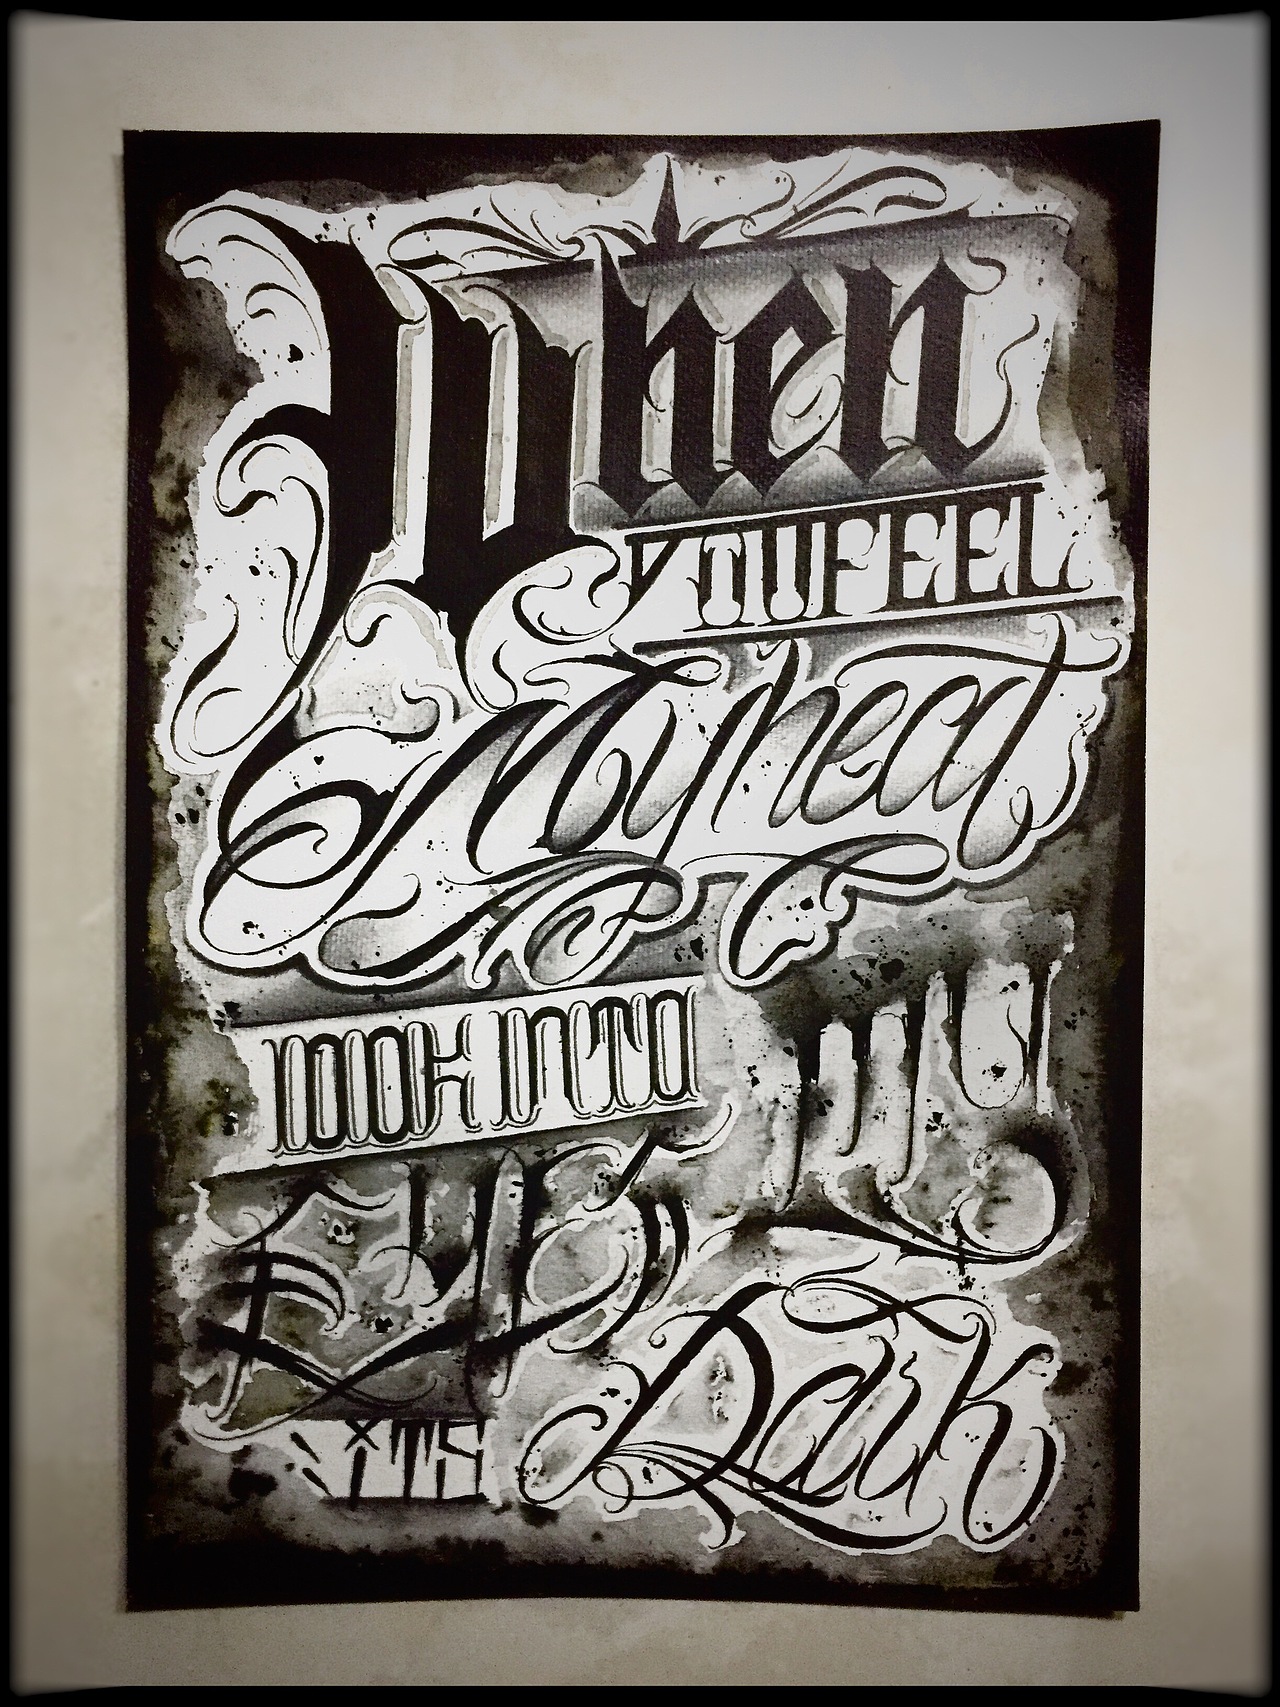 When
YOU FEEL
My heat
LOOK INTO My
EYES
iTS Dark